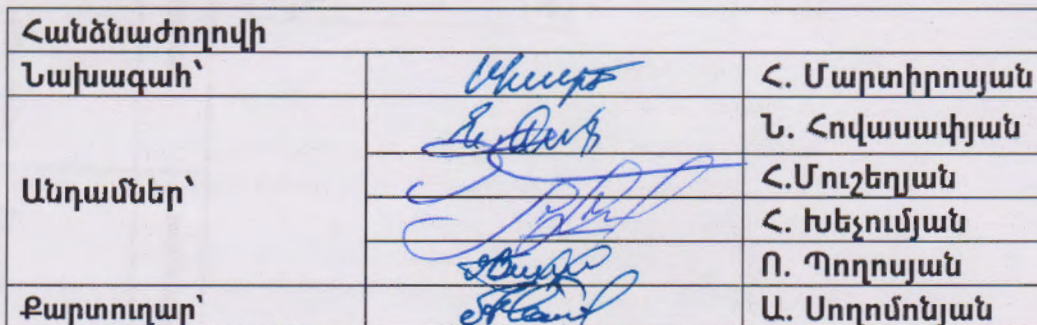 Հանձնաժողովի
Նախագահ՝ Հ. Մարտիրոսյան
Ն. Հովասափյան
Անդամներ՝ Հ.Մուշեղյան
Հ. Խեչումյան
Ո. Պողոսյան
Քարտուղար՝ Ա. Սողոմոնյան